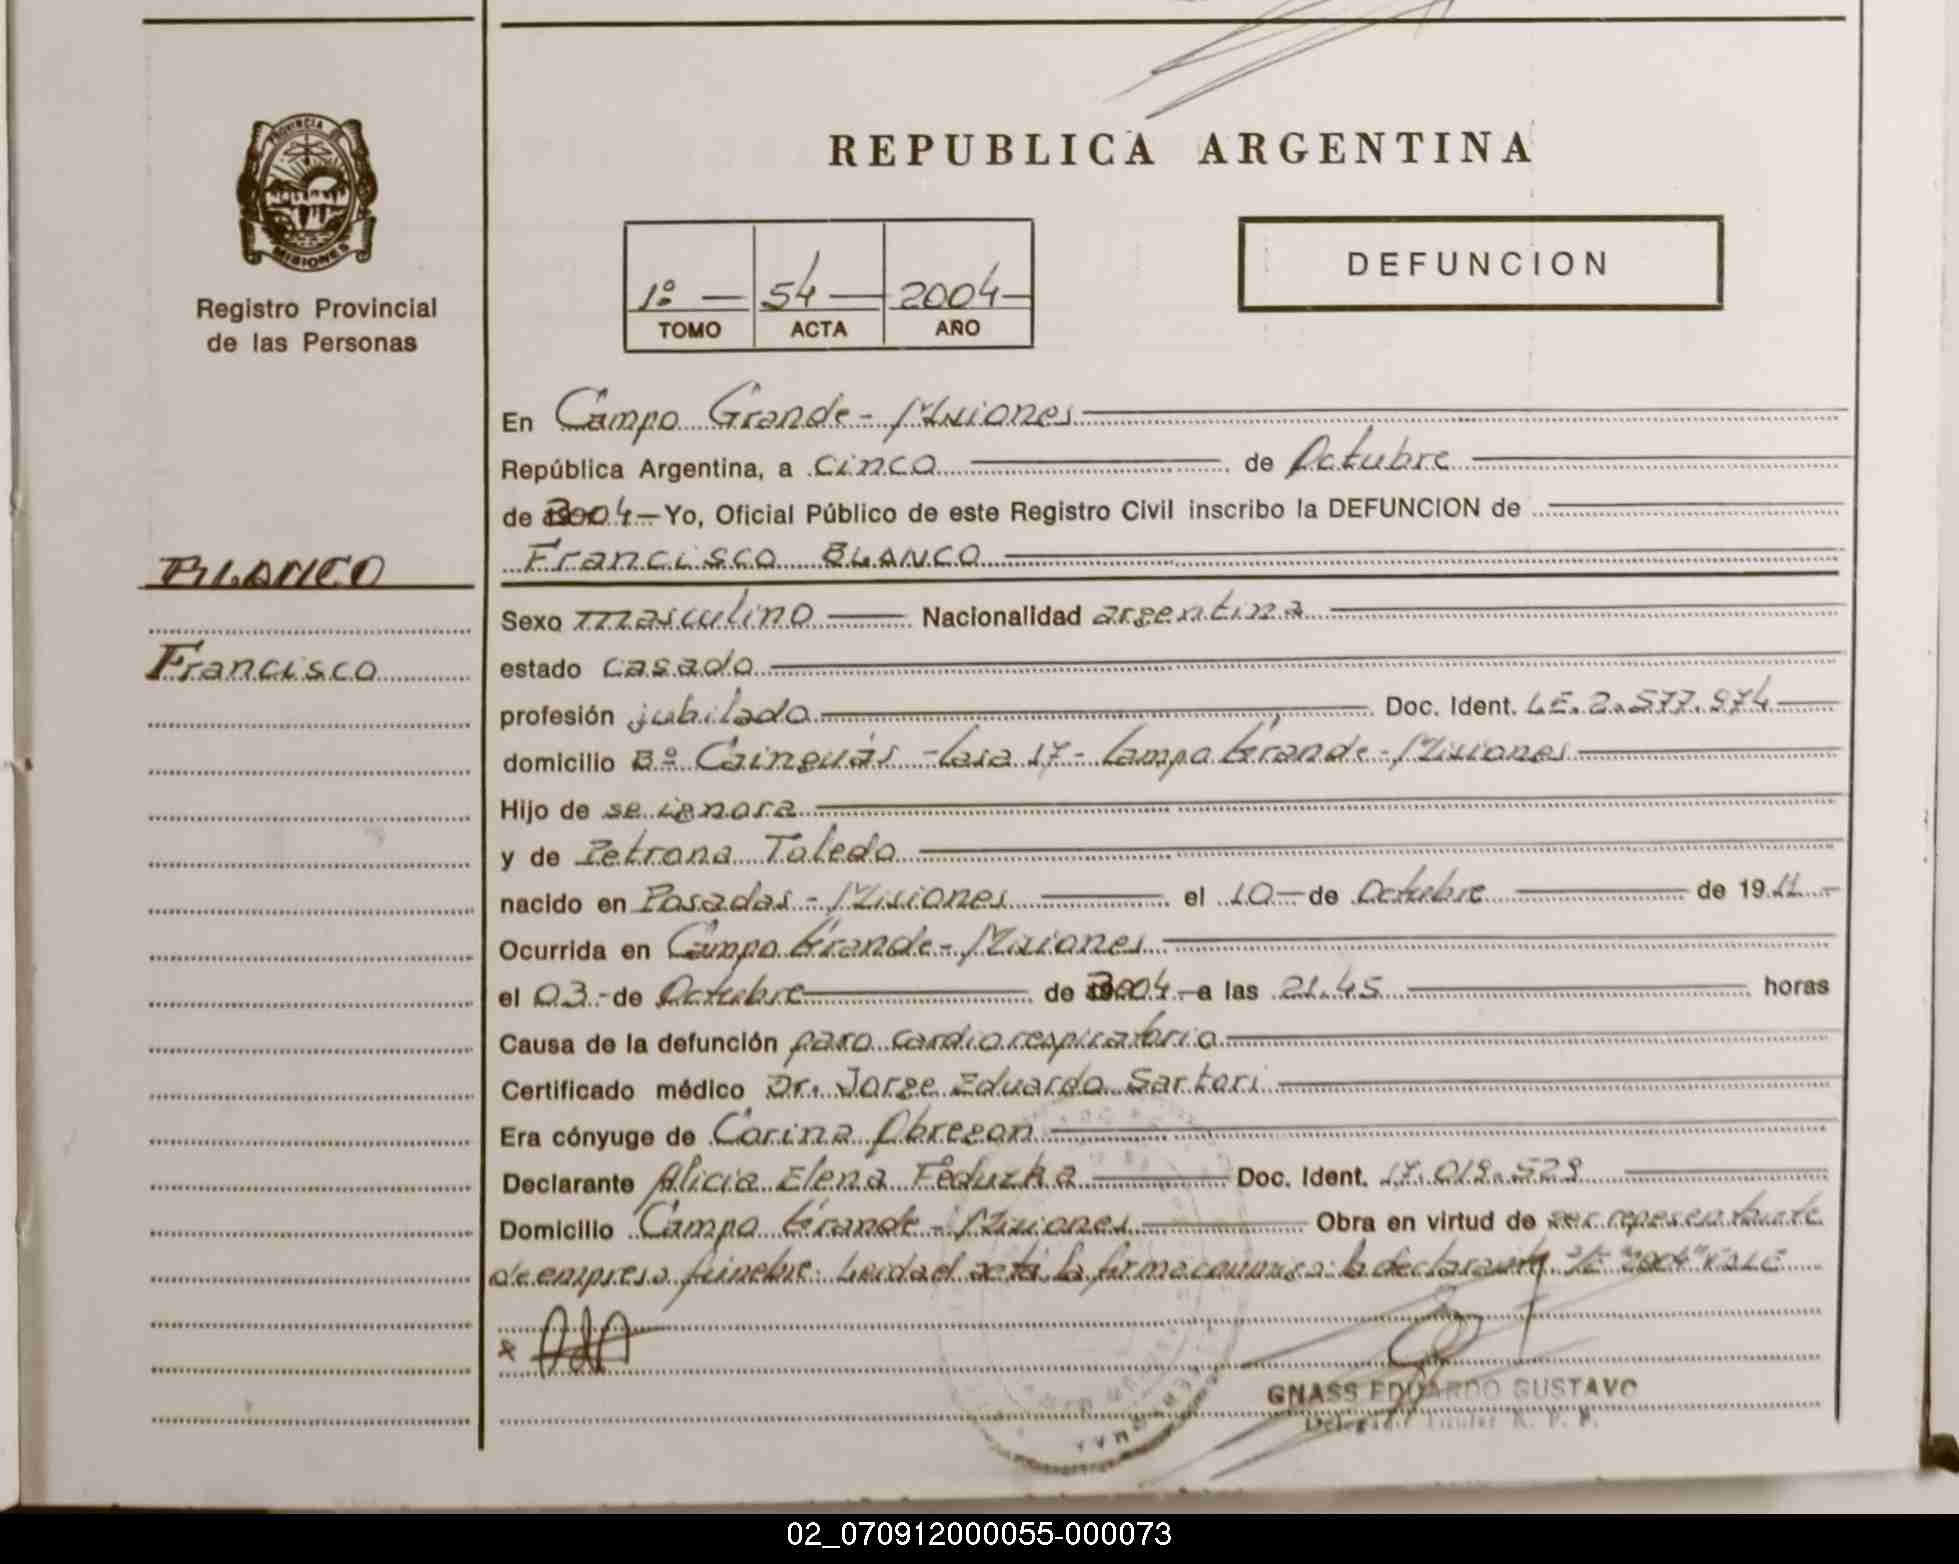 PROVINCIA DE
MISIONES
Registro Provincial
de las Personas
BLANCO
Francisco
REPUBLICA ARGENTINA
1º — 54 — 2004 —
TOMO ACTA AÑO
DEFUNCION
En Campo Grande - Misiones
República Argentina, a cinco de Octubre
de 2004 — Yo, Oficial Público de este Registro Civil inscribo la DEFUNCION de
Francisco BLANCO
Sexo masculino — Nacionalidad argentina
estado casado
profesión jubilado Doc. Ident. L.E. 2.577.974
domicilio Bº Cainguás - Casa 17 - Campo Grande - Misiones
Hijo de se ignora
y de Petrona Toledo
nacido en Posadas - Misiones — el 10 — de Octubre — de 1911 -
Ocurrida en Campo Grande - Misiones
el 03 - de Octubre — de 2004 - a las 21.45 — horas
Causa de la defunción paro cardiorespiratorio
Certificado médico Dr. Jorge Eduardo Sartori
Era cónyuge de Corina Obregon
Declarante Alicia Elena Feduzka — Doc. Ident. 17.019.529
Domicilio Campo Grande - Misiones — Obra en virtud de ser representante
de empresa fúnebre. Leída el acta la firma conmigo la declarante. S/E "2004" VALE
GNASS EDUARDO GUSTAVO
Delegado Titular R. P. P.
02_070912000055-000073